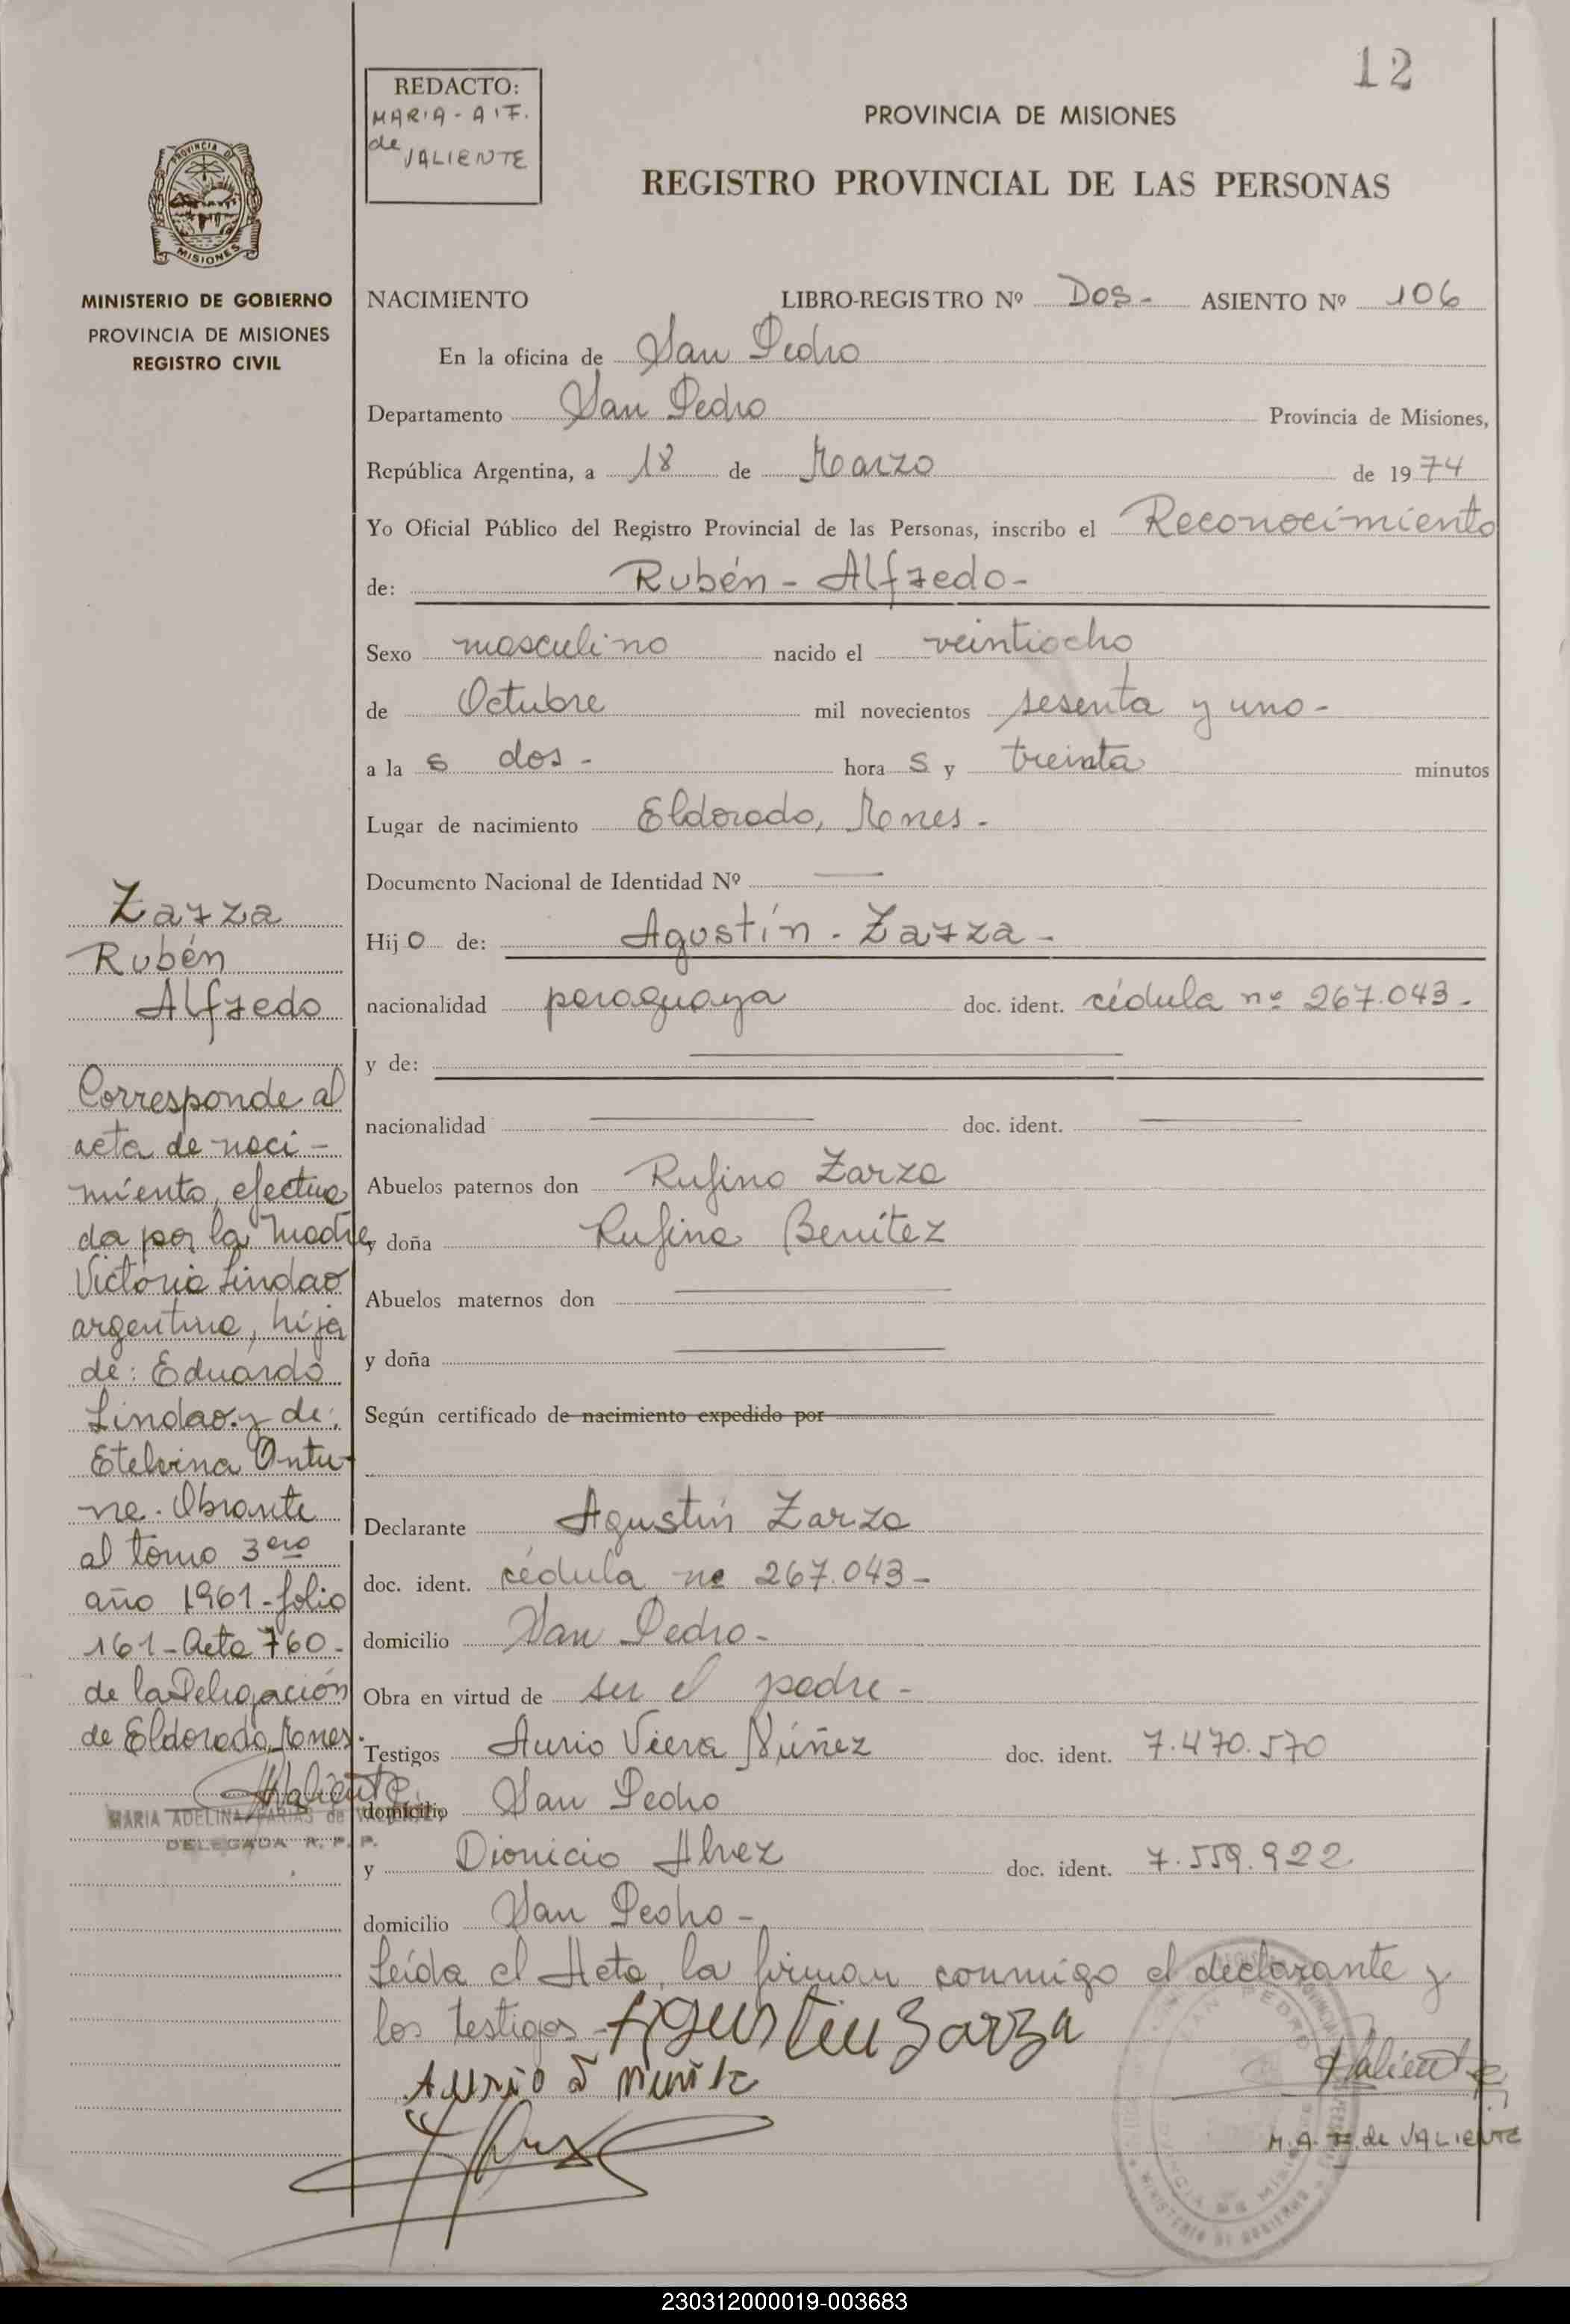 12
REDACTO:
MARIA - A.F.
de VALIENTE
PROVINCIA DE MISIONES
REGISTRO PROVINCIAL DE LAS PERSONAS
PROVINCIA DE
MISIONES
MINISTERIO DE GOBIERNO
PROVINCIA DE MISIONES
REGISTRO CIVIL
NACIMIENTO LIBRO-REGISTRO Nº Dos- ASIENTO Nº 106
En la oficina de San Pedro
Departamento San Pedro Provincia de Misiones,
República Argentina, a 18 de Marzo de 1974
Yo Oficial Público del Registro Provincial de las Personas, inscribo el Reconocimiento
de: Rubén - Alfredo-
Sexo masculino nacido el veintiocho
de Octubre mil novecientos sesenta y uno-
a la s dos- hora s y treinta minutos
Lugar de nacimiento Eldorado, Mnes-
Documento Nacional de Identidad Nº
Hijo de: Agustín - Zarza-
nacionalidad paraguaya doc. ident. cédula nº 267.043-
y de:
nacionalidad doc. ident.
Abuelos paternos don Rufino Zarza
y doña Rufina Benítez
Abuelos maternos don
y doña
Según certificado de nacimiento expedido por
Declarante Agustín Zarza
doc. ident. cédula nº 267.043-
domicilio San Pedro-
Obra en virtud de ser el padre-
Testigos Aurio Viera Núñez doc. ident. 7.470.570
domicilio San Pedro
y Dionicio Alvez doc. ident. 7.559.922
domicilio San Pedro-
Leída el Acta, la firman conmigo el declarante y
los testigos- Agustin Zarza
Aurio
Valiente
M.A.F. de VALIENTE
Zarza
Rubén
Alfredo
Corresponde al
acta de naci-
miento, efectua
da por la madre
Victoria Lindao
argentina, hija
de: Eduardo
Lindao y de:
Etelvina Antu-
ne. Obrante
al tomo 3ero
año 1961 - folio
161 - Acta 760-
de la Delegación
de Eldorado, Mnes-
Valiente
MARIA ADELINA FARIAS de VALIENTE
DELEGADA R. P. P.
SAN PEDRO
PROVINCIA DE MISIONES
MINISTERIO DE GOBIERNO
230312000019-003683